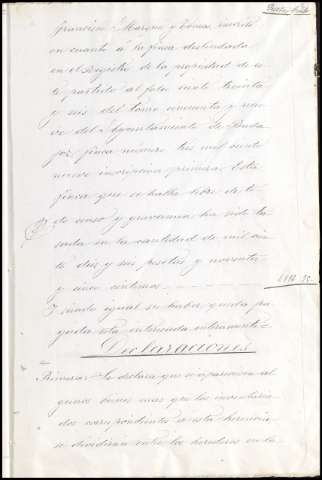 Francisco Marqués y Tomas, inscrito
en cuanto á la finca deslindada
en el Registro de la propiedad de es-
te partido al folio ciento treinta
y seis del tomo cincuenta y nue-
ve del Ayuntamiento de
finca número tres mil ciento
nueve inscripcion primera. Esta
finca que se halla libre de to-
do censo y gravamen ha sido ta-
sada en la cantidad de mil cien-
to diez y seis pesetas y noventa
y cinco centimos.
Y siendo igual su haber queda pa-
gada esta interesada enteramente.
Declaraciones
Primera. Se declara que si aparecieren al
gunos bienes mas que los inventaria-
dos correspondientes a esta herencia
se dividiran entre los herederos en la